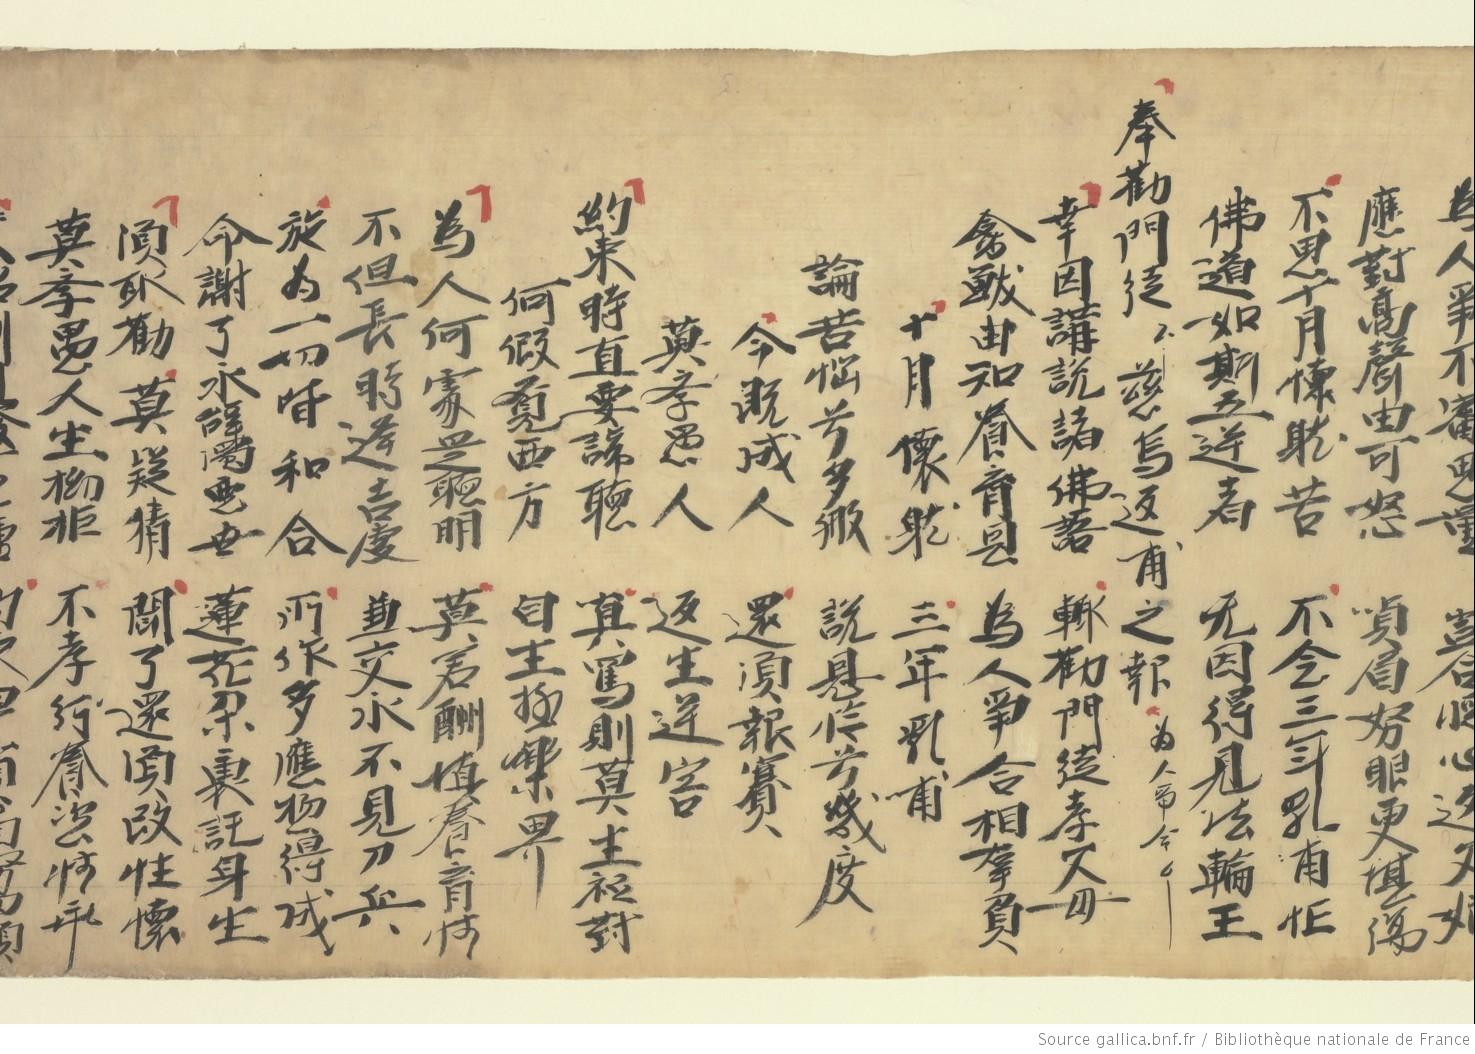 為人爭不審思量 豈合將心逆父娘
應對高聲由可怒 嗔眉努眼更堪傷
不思十月懷躭苦 不念三年乳甫恇
佛道如斯五逆者 无因得見法輪王
奉勸門徒 慈烏返甫之報 為人
幸因講說諸佛語 輙勸門徒孝父母
禽獸由知養育恩 為人爭合相辜負
十月懷躭 三年乳甫
論苦惱兮多般 說恩情兮幾度
今既成人 還須報賽
莫孝愚人 返生逆害
約束時直要諦聽 真罵則莫生祗對
何假覓西方 自生極樂界
為人何處是聰明 莫若酬填養育情
不但長時逢吉慶 兼交永不見刀兵
旋為一切皆和合 所作多應惣得成
命謝了永辭濁惡世 蓮花朵裏託身生
須取勸 莫疑猜 聞了還須改性懷
莫孝愚人生拗拒 不孝行養